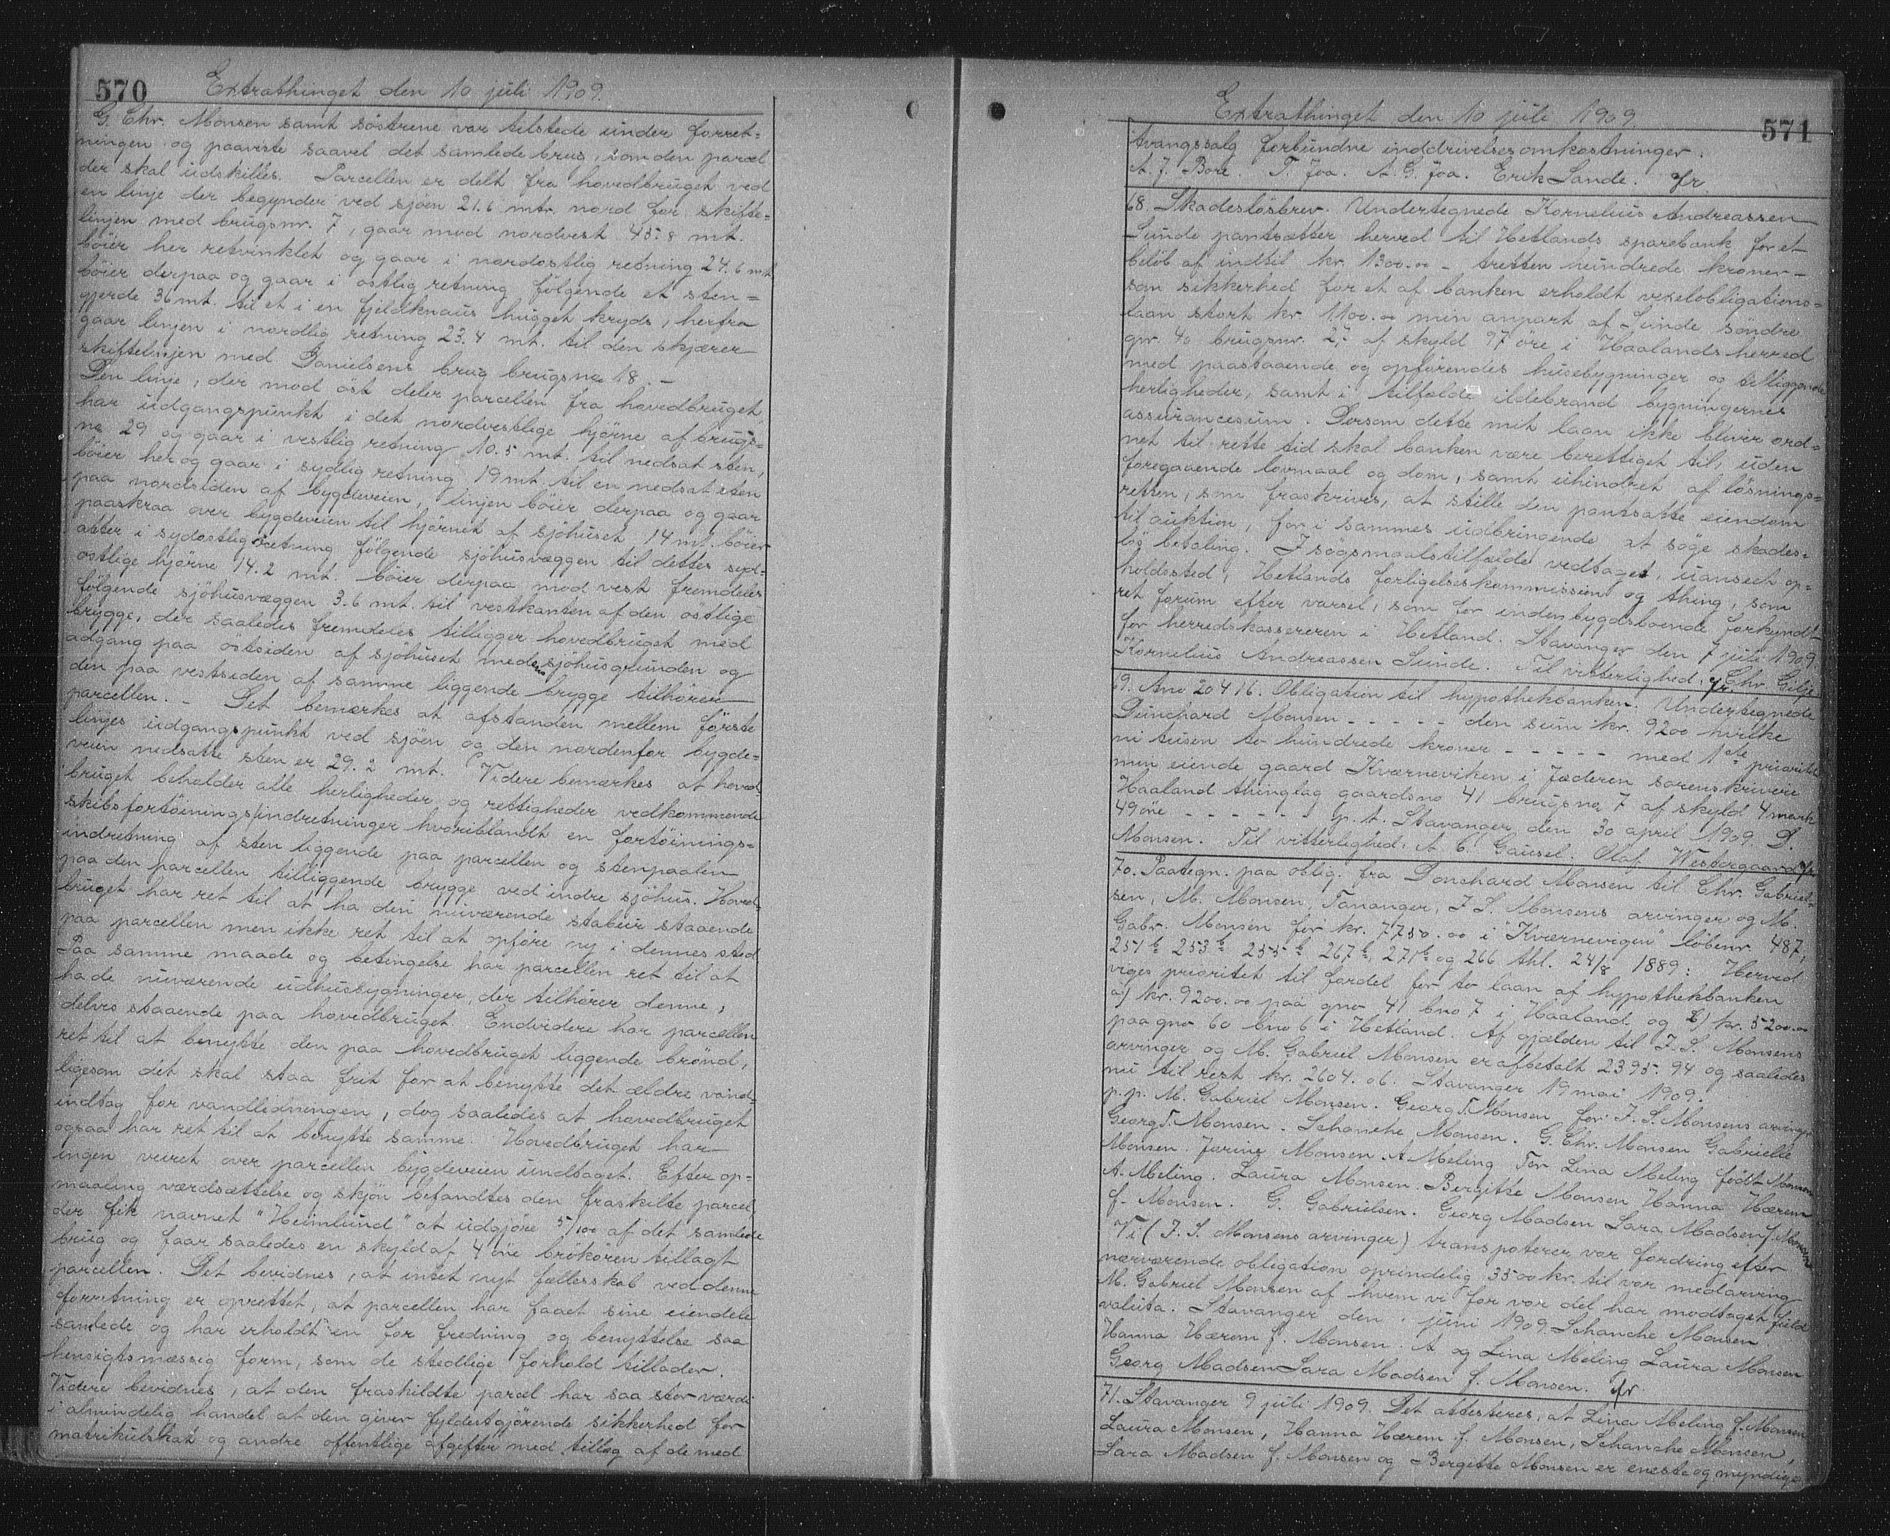 570 Extrathinget den 10 juli 1909.
G. Chr. Monsen samt söstrene var tilstede under forret-
ningen og paaviste saavel det samlede brug, som den parcel
der skal udskilles. Parcellen er delt fra hovedbruget ved
en linje der begynder ved sjöen 21.6 mtr nord for skifte-
linjen med brugsnr. 7, gaar mod nordvest 45.8 mt.
böier her retvinklet og gaar i nordostlig retning 24.6 mt
böier derpaa og gaar i ostlig retning fölgende et sten-
gjerde 36 mt. til et i en fjeldknaus hugget kryds, herfra
gaar linjen i nordlig retning 23.4 mt. til den skjærer
skiftelinjen med Danielsens brug brugsno 18. -
Den linje, der mod öst deler parcellen fra hovedbruget
har udgangspunkt i det nordvestlige hjörne af brugs-
no 29 og gaar i vestlig retning 10.5 mt. til nedsat sten,
böier her og gaar i sydlig retning 19 mt. til en nedsat sten
paa nordsiden af bygdeveien, linjen böier derpaa og gaar
paaskraa over bygdeveien til hjörnet af sjöhuset 14 mt. böier
atter i sydostlig retning fölgende sjöhusvæggen til dettes syd-
ostlige hjörne 14.2 mt. böier derpaa mod vest fremdeles
fölgende sjöhusvæggen 3.6 mt. til vestkanten af den ostlige
brygge, der saaledes fremdeles tilligger hovedbruget med
adgang paa östsiden af sjöhuset medens sjöhusgrunden og
den paa vestsiden af samme liggende brygge tilhörer
parcellen. - Det bemærkes at afstanden mellem förste
linjes udgangspunkt ved sjöen og den nordenfor bygde-
veien nedsatte sten er 29.2 mt. Videre bemærkes at hoved
bruget beholder alle herligheder og rettigheder vedkommende
skibsfortöiningsindretninger hvoriblandt en fortöinings-
indretning af sten liggende paa parcellen og stenpaalen
paa den parcellen tilliggende brygge ved indre sjöhus. Hoved-
bruget har ret til at ha den nuværende stabur staaende
paa parcellen men ikke ret til at opföre ny i dennes sted
Paa samme maade og betingelse har parcellen ret til at
ha de nuværende udhusbygninger, der tilhörer denne,
delvis staaende paa hovedbruget. Endvidere har parcellen
ret til at benytte den paa hovedbruget liggende brönd,
ligesom det skal staa frit for at benytte det ældre vand-
indtag for vandledningen, dog saaledes at hovedbruget
ogsaa har ret til at benytte samme. Hovedbruget har
ingen veiret over parcellen bygdeveien undtaget. Efter op-
maaling værdsættelse og skjön befandtes den fraskilte parcel
der fik navnet "Heimlund" at udgjöre 5/100 af det samlede
brug og faar saaledes en skyld af 4 öre brökören tillagt
parcellen. Det bevidnes, at intet nyt fællesskab ved denne
forretning er oprettet, at parcellen har faaet sine eiendele
samlede og har erholdt en for fredning og benyttelse saa
hensigtsmæssig form, som de stedlige forhold tillader.
Videre bevidnes, at den fraskildte parcel har saa stor værdi
i almindelig handel at den giver fyldestgjörende sikkerhed for
matrikulskat og andre offentlige afgifter med tillæg af de med
Extrathinget den 10 juli 1909. 571
tvangssalg forbundne inddrivelsesomkostninger.
A. J. Bore. T. Joa. A. G. Joa. Erik Sande. Jr.
68. Skadeslösbrev. Undertegnede Kornelius Andreassen
Sunde pantsætter herved til Hetlands sparebank for et
belöb af indtil kr. 1300.00 - tretten hundrede kroner -
som sikkerhed for et af banken erholdt vexelobligations-
laan stort kr. 1100.00 min anpart af Sunde söndre
gnr. 40 brugsnr. 2, af skyld 97 öre i Haalands herred
med paastaaende og opförendes husebygninger og tilliggende
herligheder, samt i tilfælde ildebrand bygningernes
assurancesum. Dersom dette mit laan ikke bliver ord-
net til rette tid skal banken være berettiget til, uden
foregaaende lovmaal og dom, samt uhindret af lösnings-
retten, som fraskrives, at stille den pantsatte eiendom
til auktion, for i sammes udbringende at söge skades-
lös betaling. I sögsmaalstilfælde vedtages, uanseet op-
holdssted, Hetlands forligelseskommission og thing, som
ret forum efter varsel, som for indenbygdsboende forkyndt
for herredskassereren i Hetland. Stavanger den 7 juli 1909
Kornelius Andreassen Sunde. Til vitterlighed: Chr. Gilje
Jr
69. Ano 20416. Obligation til hypothekbanken. Undertegnede
Dunchard Monsen - - - - - den sum kr. 9200 hvilke
ni tusen to hundrede kroner - - - - - med 1ste prioritet
min eiende gaard Kværneviken i Jæderen sorenskriveri
Haaland thinglag gaardsno 41 brugsno 7 af skyld 4 mark
49 öre - - - - - - p. t. Stavanger den 30 april 1909. D.
Monsen. Til vitterlighed: A C. Gausel. Olaf Westergaard Jr.
70. Paategn. paa oblig. fra Donchard Monsen til Chr. Gabriel-
sen, M. Monsen, Tananger, J. S. Monsens arvinger og M.
Gabr. Monsen for kr. 7750.00 i "Kværnevigen" löbenr. 487,
251b 253b 255b 267b, 271b og 266 thl. 24/8 1889: Herved
viges prioritet til fordel for to laan af hypothekbanken
a) kr. 9200.00 paa gno 41 bno 7 i Haaland og b) kr. 5200.00
paa gno 60 bno 6 i Hetland. Af gjælden til J. S. Monsens
arvinger og M. Gabriel Monsen er afbetalt 2395.94 og saaledes
nu til rest kr. 2604.06. Stavanger 19 mai 1909.
p. p. M. Gabriel Monsen. Georg T. Monsen for J. S. Monsens arvinger
Georg T. Monsen. Schanche Monsen. G. Chr. Monsen Gabrielle
Monsen. Jorine Monsen. A Meling For Lina Meling födt Monsen
A. Meling. Laura Monsen. Bergitte Monsen Hanna Hærem
f. Monsen. G. Gabrielsen. Georg Madsen Sara Madsen f. Monsen
Vi (J. S. Monsens arvinger) transporterer vor fordring efter
nærværende obligation oprindelig 3500 kr. til vor medarving
M. Gabriel Monsen af hvem vi for vor del har modtaget fuld
valuta. Stavanger den . juni 1909. Schanche Monsen
Hanna Hærem f. Monsen. A og Lina Meling Laura Monsen
Georg Madsen Sara Madsen f. Monsen. Jr
71. Stavanger 9 juli 1909. Det attesteres, at Lina Meling f. Monsen
Laura Monsen, Hanna Hærem f. Monsen, Schanche Monsen,
Sara Madsen f. Monsen og Bergette Monsen er eneste og myndige